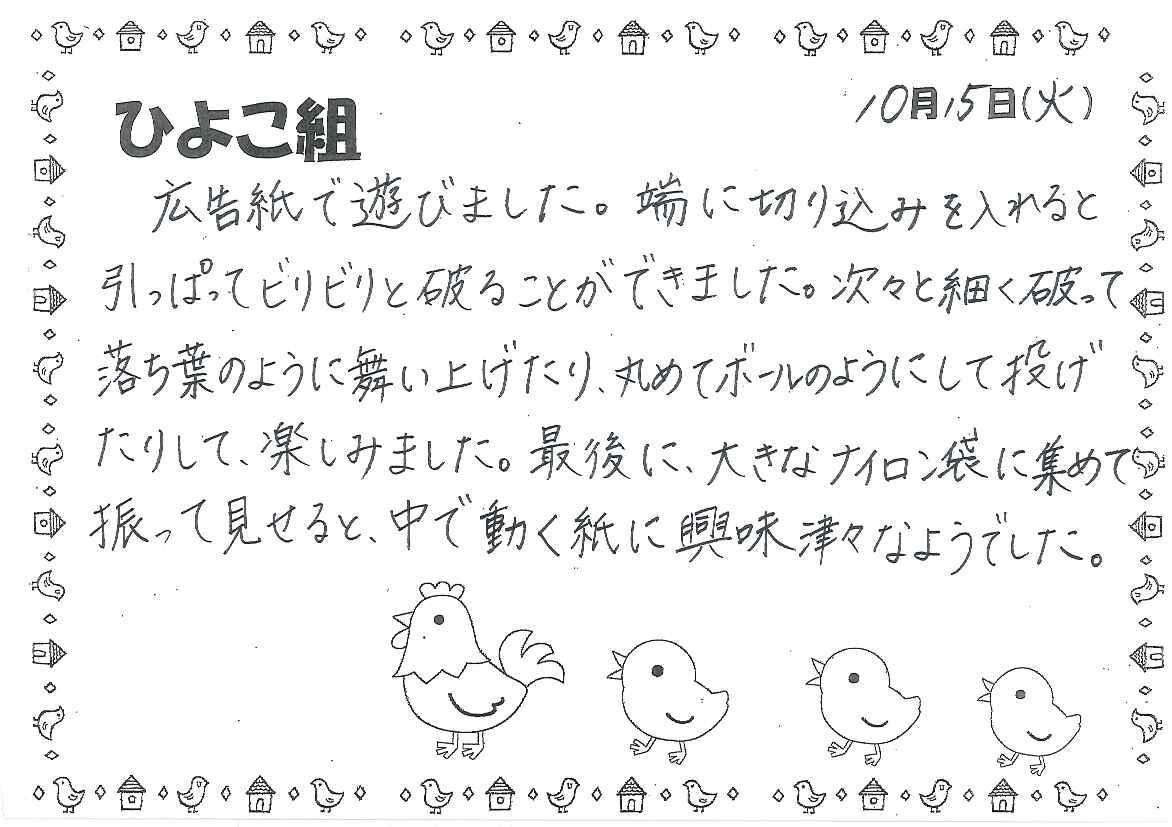 ひよこ組
10月15日(火)
広告紙で遊びました。端に切り込みを入れると
引っぱってビリビリと破ることができました。次々と細く破って
落ち葉のように舞い上げたり、丸めてボールのようにして投げ
たりして、楽しみました。最後に、大きなナイロン袋に集めて
振って見せると、中で動く紙に興味津々なようでした。